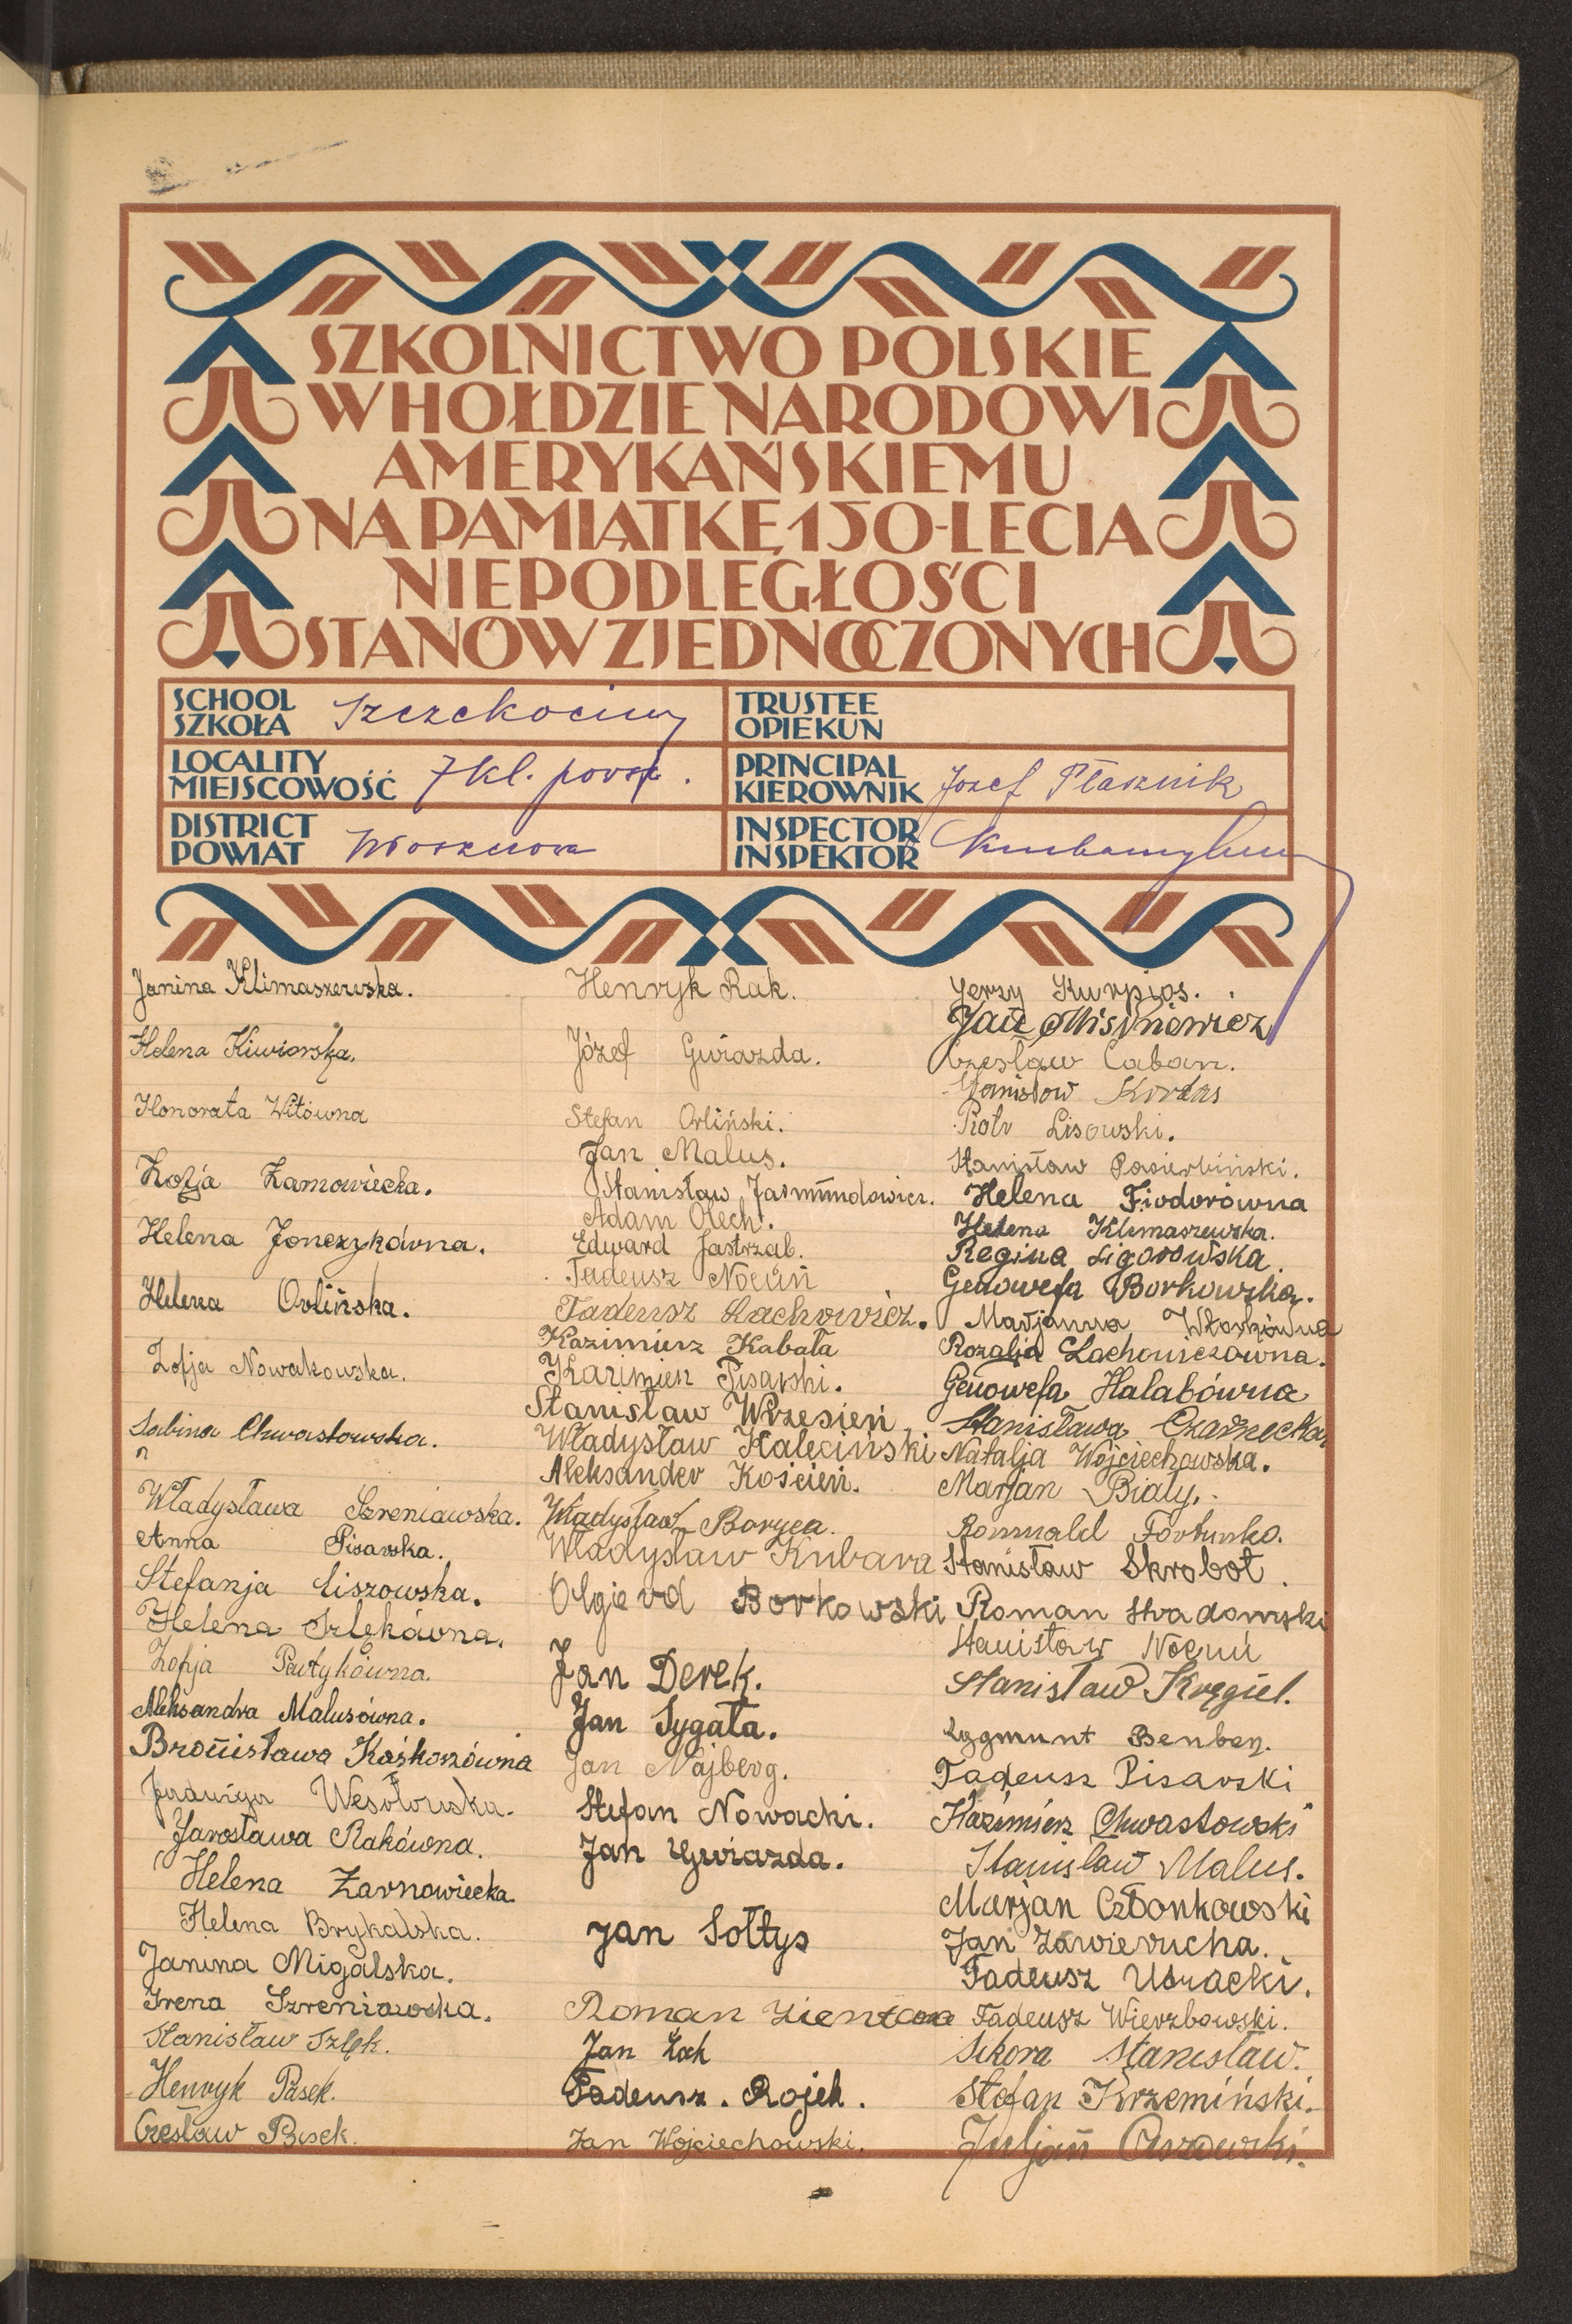 SZKOLNICTWO POLSKIE
W HOŁDZIE NARODOWI
AMERYKAŃSKIEMU
NA PAMIĄTKĘ 150-LECIA
NIEPODLEGŁOŚCI
STANÓW ZJEDNOCZONYCH
SCHOOL
SZKOŁA
Szczekociny
TRUSTEE
OPIEKUN
LOCALITY
MIEJSCOWOŚĆ
7 kl. powsz.
PRINCIPAL
KIEROWNIK
Józef Ptasznik
DISTRICT
POWIAT
Włoszczowa
INSPECTOR
INSPEKTOR
Janina Klimaszewska.
Helena Kiwiorska.
Honorata Witówna
Zofja Zarnowiecka.
Helena Jonczykówna.
Helena Orlińska.
Zofja Nowakowska.
Sabina Chwastowska.
Władysława Szreniawska.
Anna Pisarska.
Stefanja Liszowska.
Helena Szlękówna.
Zofja
Aleksandra Malusówna.
Bronisława Kaśkoszówna
Jadwiga Wesołowska.
Jarosława Rakówna.
Helena Żarnowiecka
Helena Brykalska.
Janina Migalska.
Irena Szreniawska.
Stanisław Szlęk.
Henryk Pasek.
Czesław Pasek.
Henryk Rak.
Józef Gwiazda.
Stefan Orliński.
Jan Malus.
Stanisław Jasmundowicz.
Adam Olech.
Edward Jastrząb.
Tadeusz Nocuń
Tadeusz Lachowicz.
Kazimierz Kabała
Kazimierz Pisarski.
Stanisław Wrzesień
Władysław Kaleciński
Aleksander Koścień.
Władysław Boryca.
Władysław Kubara
Olgierd Borkowski
Jan Derek.
Jan Sygała.
Jan Najberg.
Stefan Nowacki.
Jan Gwiazda.
Jan Sołtys
Roman Zientara
Jan Żak
Tadeusz. Rojek.
Jan Wojciechowski.
Jerzy Kurpios.
Jan Misiniewicz
Czesław Caban.
Stanisław Kordas
Piotr Lisowski.
Stanisław Pasierbiński.
Helena Fiodorówna
Helena Klimaszewska.
Regina Ligorowska.
Genowefa Borkowska.
Marjanna Włoskówna
Rozalja Lachowiczówna.
Genowefa Halabówna
Stanisława Czarnecka
Natalja Wojciechowska.
Marjan Biały.
Romuald Fortunko.
Stanisław Skrobot.
Roman Stradomski
Stanisław Nocuń
Stanisław Kręgiel.
Zygmunt
Tadeusz Pisarski
Kazimierz Chwastowski
Stanisław Malus.
Marjan Członkowski
Jan Zawierucha.
Tadeusz
Tadeusz Wierzbowski.
Sikora Stanisław.
Stefan Krzemiński.
Juljan